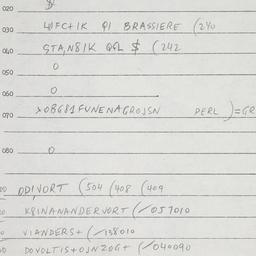 020 $
030 4JFC+1K Q1 BRASSIERE (240
040 STA,N81K QGL $ (242
050 0
060 0
070 >OBG81FUNENAGROJSN PERL )=GR
080 0
ODIVORT (504 (408 (409
K8INANANDERVORT (/057010
VIANDERS+ (/138010
DOVOLTIS+OJNZOG+ (/040090